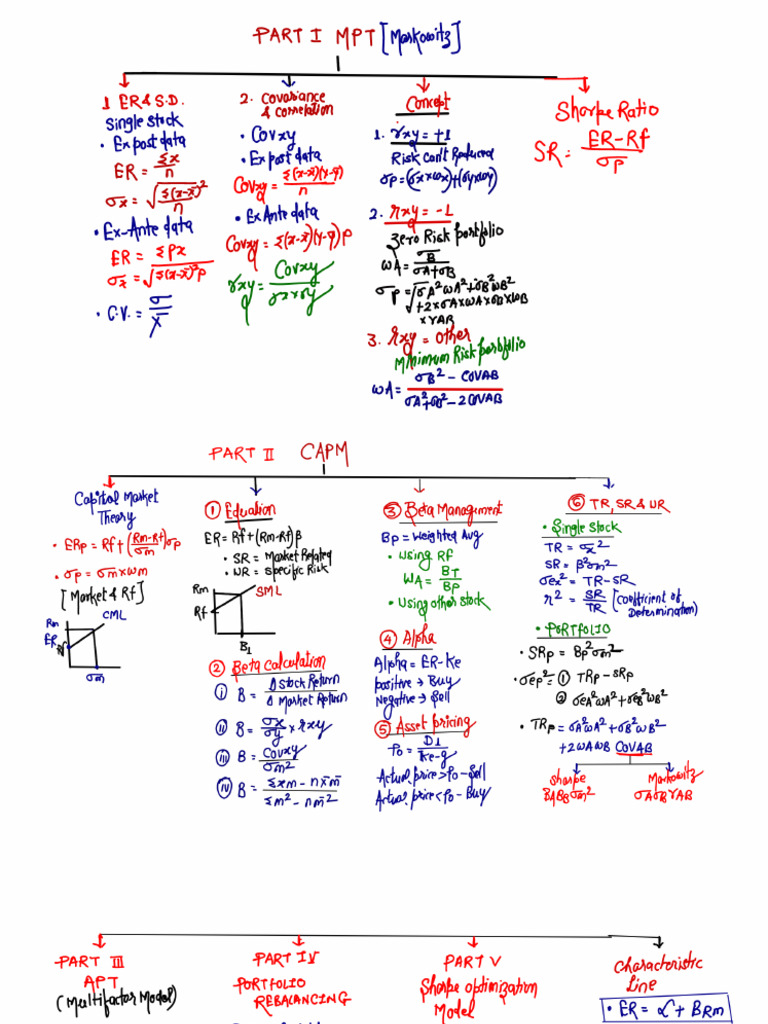 PART I MPT [Markowitz]
1 ER & S.D.
Single Stock
• Expost data
ER = Σx/n
σx = √(Σ(x-x̄)²/n)
• Ex-Ante data
ER = ΣPx
σx = √(Σ(x-x̄)²p)
• C.V. = σ/x̄
2. Covariance
& Correlation
• Covxy
• Expost data
Covxy = Σ(x-x̄)(y-ȳ)/n
• ExAnte data
Covxy = Σ(x-x̄)(y-ȳ)p
rxy = Covxy/σx×σy
Concept
1. rxy = +1
Risk can't Reduced
σp = (σx×ωx)+(σy×ωy)
2. rxy = -1
Zero Risk Portfolio
ωA = σB/σA+σB
σp = √σA²ωA²+σB²ωB²
+2×σA×ωA×σB×ωB
×rAB
3. rxy = other
Minimum Risk portfolio
ωA = σB² - COVAB/σA²+σB² - 2COVAB
Sharpe Ratio
SR = ER-Rf/σp
PART II CAPM
Capital Market
Theory
• ERp = Rf+(Rm-Rf/σm)σp
• σp = σm×ωm
[Market & Rf]
CML
Rm
ER
Rf
σm
① Equation
ER = Rf+(Rm-Rf)β
• SR = Market Related
• UR = Specific Risk
Rm
SML
Rf
B1
② Beta Calculation
(i) B = Δ Stock Return/Δ Market Return
(ii) B = σx/σy × rxy
(iii) B = Covxy/σm²
(iv) B = Σxm - nx̄m̄/Σm² - nm̄²
③ Beta Management
Bp = Weighted Avg
• Using RF
WA = BT/BP
• Using other stock
④ Alpha
Alpha = ER-Ke
positive → Buy
Negative → Sell
⑤ Asset pricing
Po = D1/Ke-g
Actual price > Po - Sell
Actual price < Po - Buy
⑥ TR, SR & UR
• Single Stock
TR = σx²
SR = β²σm²
σex² = TR-SR
r² = SR/TR [Coefficient of
Determination)
• PORTFOLIO
• SRp = Bp²σm²
• σep² = ① TRp - SRp
② σeA²ωA²+σeB²ωB²
• TRp = σA²ωA²+σB²ωB²
+2ωAωB COVAB
Sharpe
BABBσm²
Markowitz
σAσBrAB
PART III
APT
(Multifactor Model)
PART IV
PORTFOLIO
REBALANCING
PART V
Sharpe Optimization
Model
Characteristic
Line
• ER = α + BRm